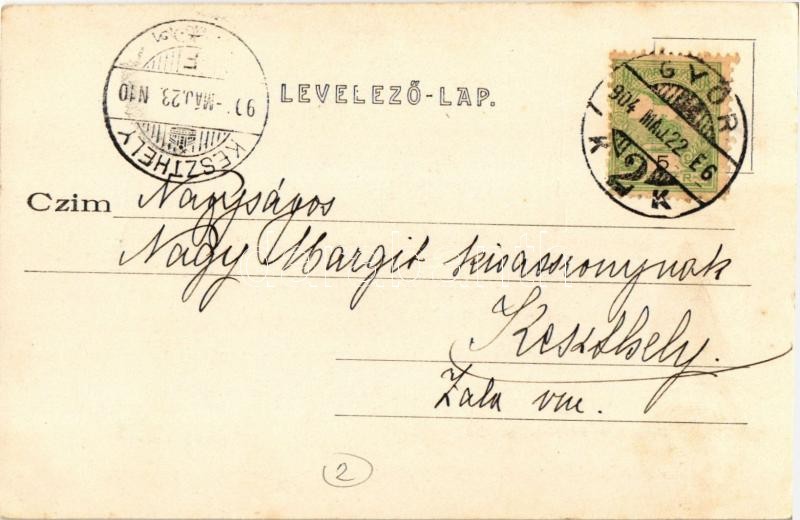 LEVELEZŐ-LAP.
KESZTHELY
9 -MÁJ.23. N10
GYŐR
904 MÁJ 22 E6
5
Czim Nagyságos
Nagy Margit kisasszonynak
Keszthely.
Zala vm.
2